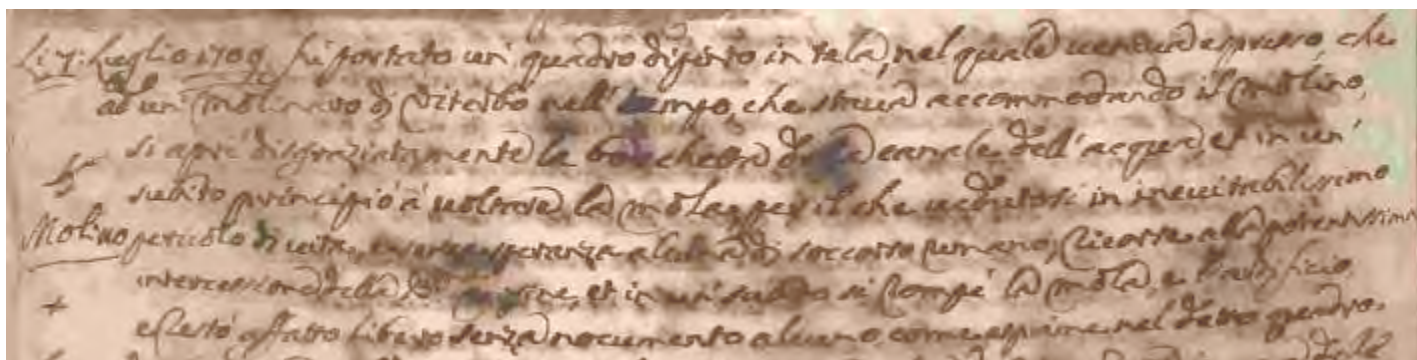 Li 7: Luglio 1709 fù portato un' quadro dipinto in tela, nel quale veniva espresso, che
ad un' Molinaro di Viterbo nell' tempo, che stava accommodando il Molino,
si aprì disgraziatamente la bocchetta del canale dell' acqua, et in un'
subito principiò à voltare la Mola, per il che vedutosi in inevitabilissimo
Molino pericolo di vita, senza speranza alcuna di soccorso humano, ricorse alla potentissima
intercessione della Vergine, et in un' subito si rompè la Mola, e l'artificio
e restò affatto libero senza nocumento alcuno come esprime nel detto quadro.